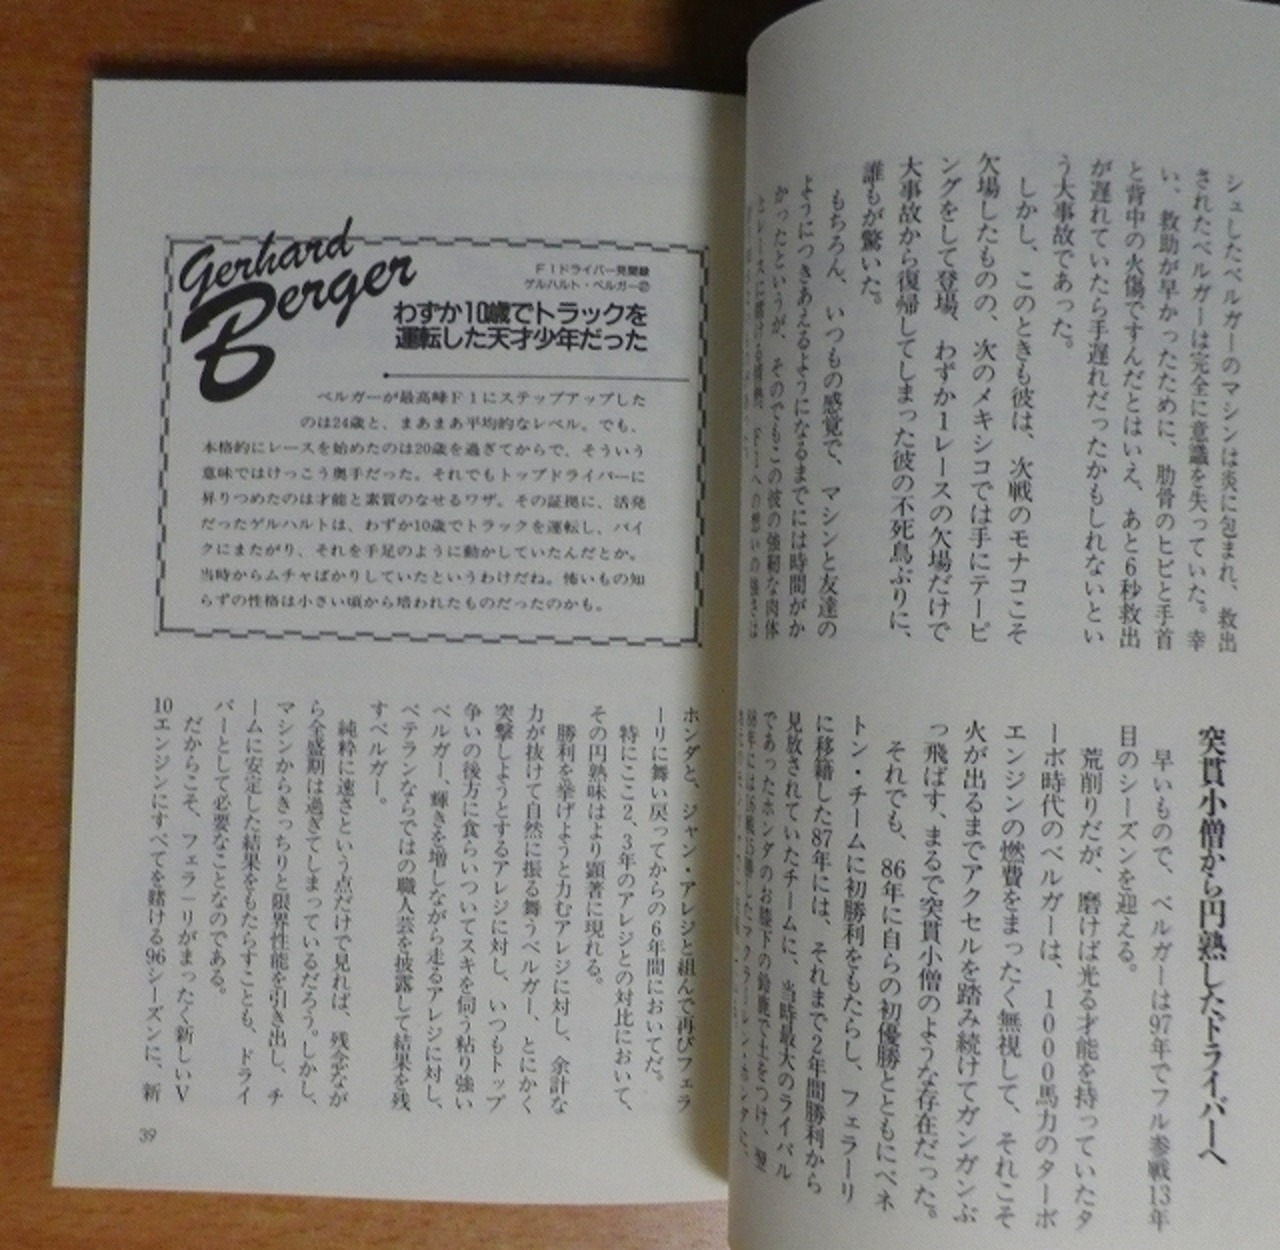 シュしたベルガーのマシンは炎に包まれ、救出
されたベルガーは完全に意識を失っていた。幸
い、救助が早かったために、肋骨のヒビと手首
と背中の火傷ですんだとはいえ、あと6秒救出
が遅れていたら手遅れだったかもしれないとい
う大事故であった。
しかし、このときも彼は、次戦のモナコこそ
欠場したものの、次のメキシコでは手にテーピ
ングをして登場、わずか1レースの欠場だけで
大事故から復帰してしまった彼の不死鳥ぶりに、
誰もが驚いた。
もちろん、いつもの感覚で、マシンと友達の
ようにつきあえるようになるまでには時間がか
かったというが、そのでもこの彼の強靭な肉体
突貫小僧から円熟したドライバーへ
早いもので、ベルガーは97年でフル参戦13年
目のシーズンを迎える。
荒削りだが、磨けば光る才能を持っていたタ
ーボ時代のベルガーは、1000馬力のターボ
エンジンの燃費をまったく無視して、それこそ
火が出るまでアクセルを踏み続けてガンガンぶ
っ飛ばす、まるで突貫小僧のような存在だった。
それでも、86年に自らの初優勝とともにベネ
トン・チームに初勝利をもたらし、フェラーリ
に移籍した87年には、それまで2年間勝利から
見放されていたチームに、当時最大のライバル
であったホンダのお膝下の鈴鹿で土をつけ、翌
Gerhard
Berger
F1ドライバー見聞録
ゲルハルト・ベルガー②
わずか10歳でトラックを
運転した天才少年だった
ベルガーが最高峰F1にステップアップした
のは24歳と、まあまあ平均的なレベル。でも、
本格的にレースを始めたのは20歳を過ぎてからで、そういう
意味ではけっこう奥手だった。それでもトップドライバーに
昇りつめたのは才能と素質のなせるワザ。その証拠に、活発
だったゲルハルトは、わずか10歳でトラックを運転し、バイ
クにまたがり、それを手足のように動かしていたんだとか。
当時からムチャばかりしていたというわけだね。怖いもの知
らずの性格は小さい頃から培われたものだったのかも。
ホンダと、ジャン・アレジと組んで再びフェラ
ーリに舞い戻ってからの6年間においてだ。
特にここ2、3年のアレジとの対比において、
その円熟味はより顕著に現れる。
勝利を挙げようと力むアレジに対し、余計な
力が抜けて自然に振る舞うベルガー、とにかく
突撃しようとするアレジに対し、いつもトップ
争いの後方に食らいついてスキを伺う粘り強い
ベルガー、輝きを増しながら走るアレジに対し、
ベテランならではの職人芸を披露して結果を残
すベルガー。
純粋に速さという点だけで見れば、残念なが
ら全盛期は過ぎてしまっているだろう。しかし、
マシンからきっちりと限界性能を引き出し、チ
ームに安定した結果をもたらすことも、ドライ
バーとして必要なことなのである。
だからこそ、フェラーリがまったく新しいV
10エンジンにすべてを賭ける96シーズンに、新
39